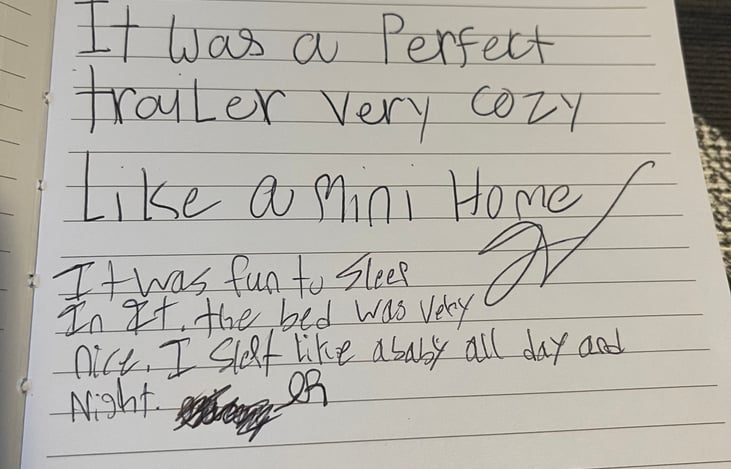 It was a Perfect
trayler very cozy
Like a mini Home
It was fun to Sleep
In It. the bed was very
nice. I Slept like a baby all day and
Night.